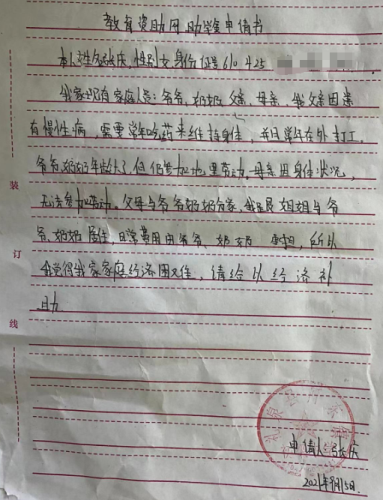 教育资助网助学金申请书
本人姓名张庆,性别女,身份证号610425
我家现有家庭人员:爷爷、奶奶、父亲、母亲,我父亲因患
有慢性病,需要常年吃药来维持身体,并且常年在外打工,
爷爷奶奶年龄大了,但仍参加地里劳动,母亲因身体状况,
无法参加劳动,父母与爷爷奶奶分家,我跟姐姐与爷
爷、奶奶居住,日常费用由爷爷、奶奶 ,所以
我觉得我家家庭经济困难,请给以经济补
助
装
订
线
申请人:张庆
2021年 月15日